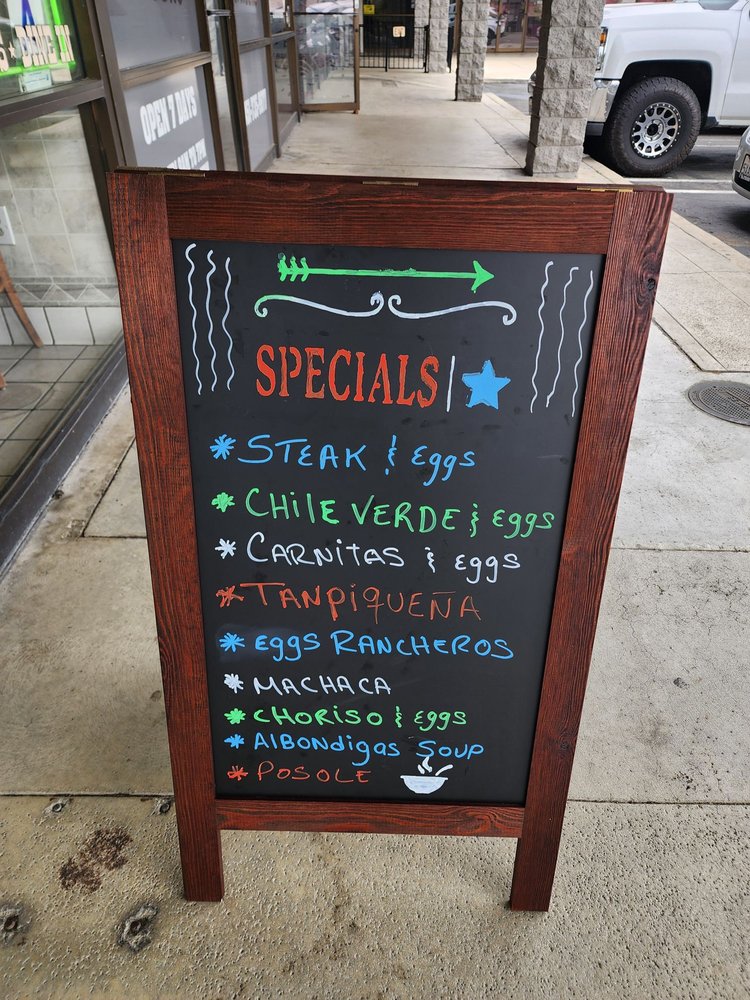 DINE IN
OPEN 7 DAYS
SPECIALS
STEAK & Eggs
CHilE VERDE & Eggs
CARNitAS & Eggs
TANPiQUEÑA
Eggs RANCHEROS
MACHACA
CHORiSO & Eggs
AlBONdigAS SOUP
POSOLE